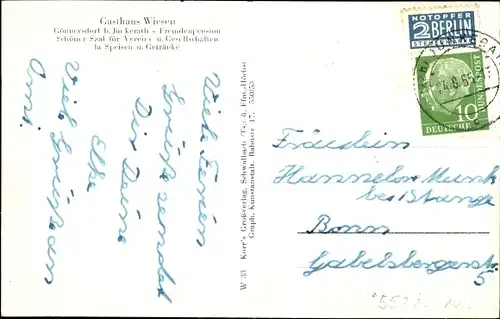 Gasthaus Wiesen
Gönnersdorf b. Jünkerath - Fremdenpension
Schöner Saal für Vereine u. Gesellschaften
la Speisen u. Getränke
Viele Ferien
Grüße sendet
Dir Deine
Elke
Viel Grüße an
Omi.
W 33 Korr's Großverlag, Schwalbach/Ts. ü. Ffm.-Höchst
Graph. Kunstanstalt, Bahnstr. 17, 550/53
NOTOPFER
2 BERLIN
STEUERMARKE
14.8.5
DEUTSCHE BUNDESPOST
10
Fräulein
Hannelore Munk
bei Stange
Bonn
Gabelsbergerstr.
5